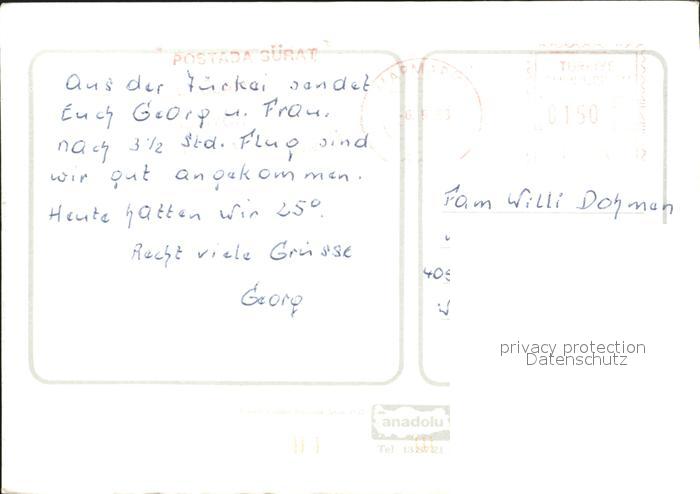 POSTADA SÜRAT
TÜRKİYE
0150
Aus der Türkei sendet
Euch Georg u. Frau.
nach 3½ Std. Flug sind
wir gut angekommen.
Heute hatten wir 25°.
Recht viele Grüsse
Georg
Fam Willi Dohmen
privacy protection
Datenschutz
anadolu
Tel